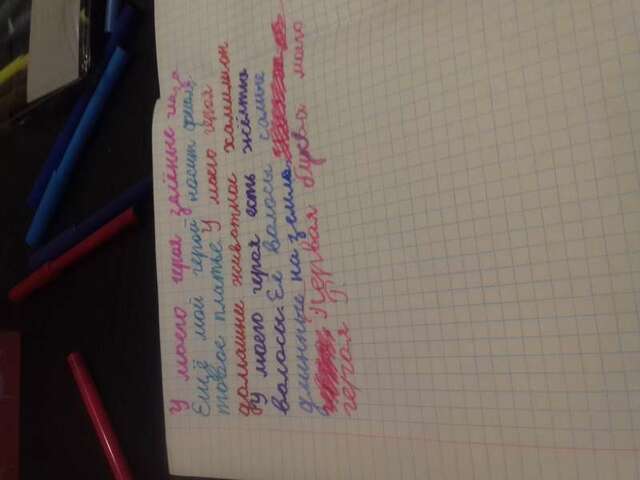 У моего героя зелёные глаза
Ещё мой герой насит фиоле
товое платье. У моего героя
домашнее животное хамилион
У моего героя есть жёлтые
валосы. Её валосы самые
длинные на земле.
Первая буква моего
героя Г.